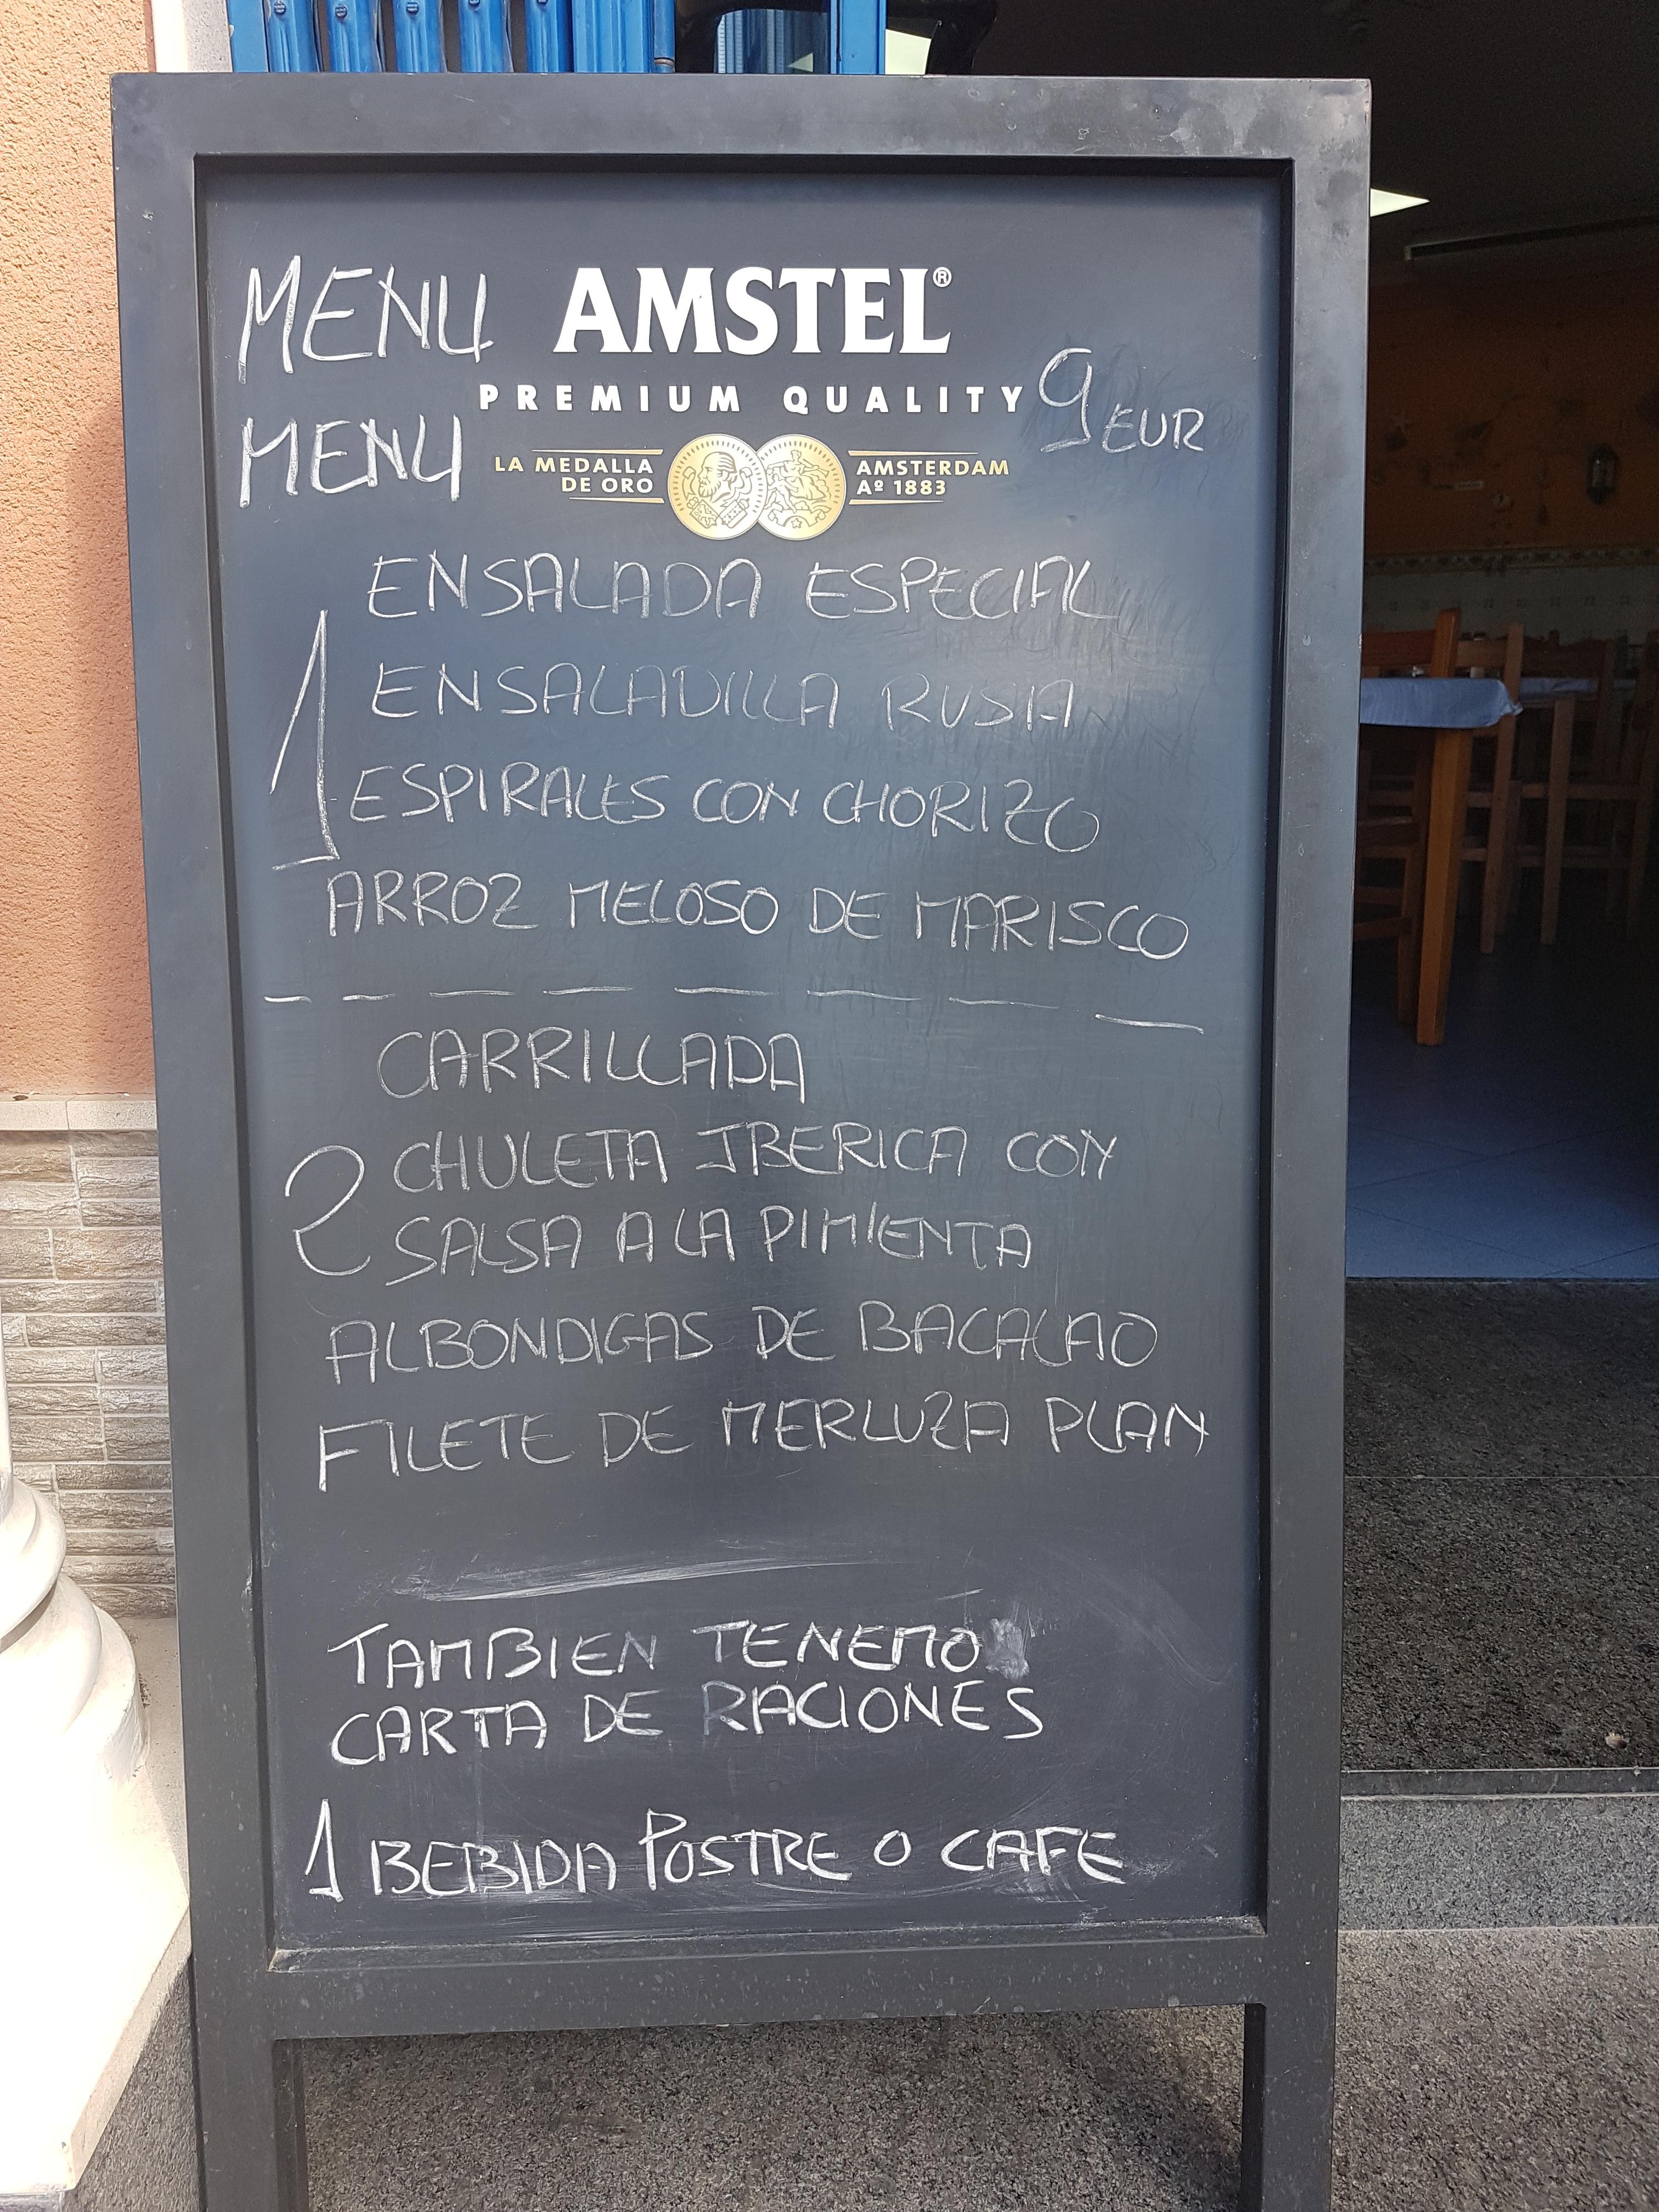 MENU AMSTEL®
PREMIUM QUALITY 9 EUR
MENU
LA MEDALLA DE ORO
AMSTERDAM Aº 1883
ENSALADA ESPECIAL
1
ENSALADILLA RUSIA
ESPIRALES CON CHORIZO
ARROZ MELOSO DE MARISCO
CARRILLADA
2
CHULETA IBERICA CON
SALSA A LA PIMIENTA
ALBONDIGAS DE BACALAO
FILETE DE MERLUZA PLAN
TAMBIEN TENEMO
CARTA DE RACIONES
1 BEBIDA POSTRE O CAFE